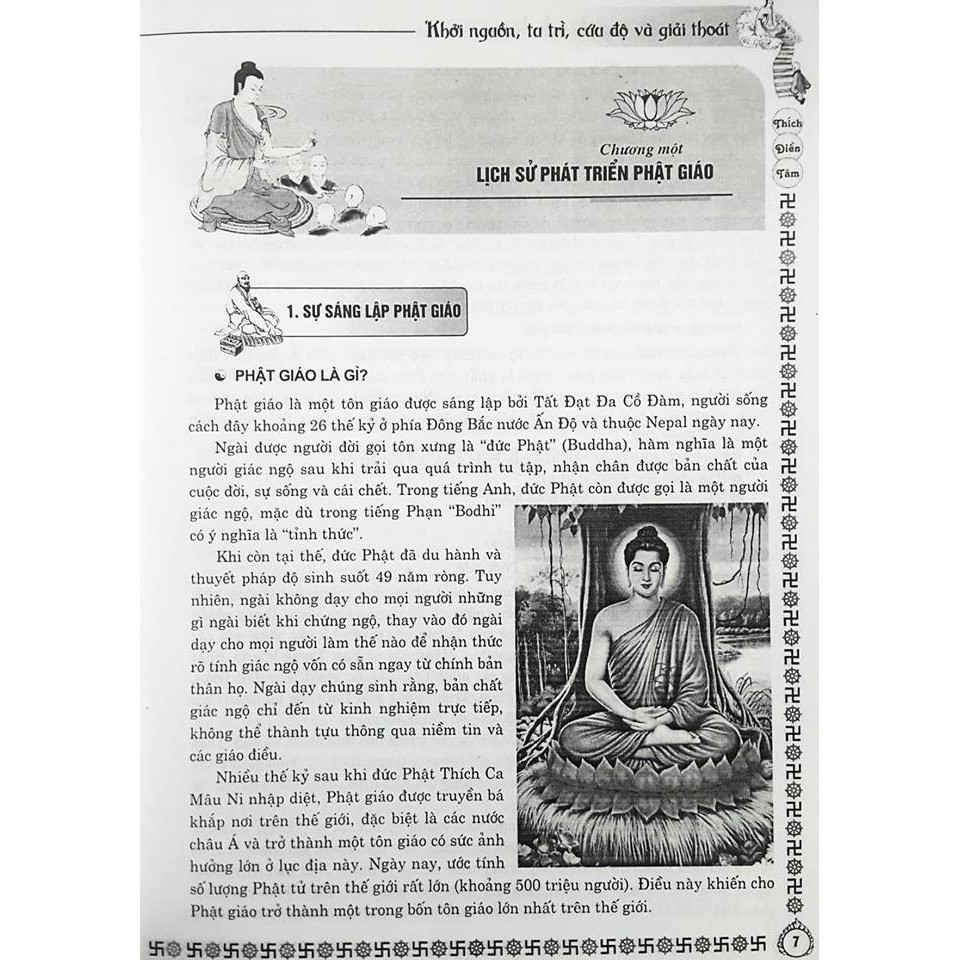 Khởi nguồn, tu trì, cứu độ và giải thoát
Thích
Điền
Tâm
Chương một
LỊCH SỬ PHÁT TRIỂN PHẬT GIÁO
1. SỰ SÁNG LẬP PHẬT GIÁO
PHẬT GIÁO LÀ GÌ?
Phật giáo là một tôn giáo được sáng lập bởi Tất Đạt Đa Cồ Đàm, người sống
cách đây khoảng 26 thế kỷ ở phía Đông Bắc nước Ấn Độ và thuộc Nepal ngày nay.
Ngài được người đời gọi tôn xưng là “đức Phật” (Buddha), hàm nghĩa là một
người giác ngộ sau khi trải qua quá trình tu tập, nhận chân được bản chất của
cuộc đời, sự sống và cái chết. Trong tiếng Anh, đức Phật còn được gọi là một người
giác ngộ, mặc dù trong tiếng Phạn “Bodhi”
có ý nghĩa là “tỉnh thức”.
Khi còn tại thế, đức Phật đã du hành và
thuyết pháp độ sinh suốt 49 năm ròng. Tuy
nhiên, ngài không dạy cho mọi người những
gì ngài biết khi chứng ngộ, thay vào đó ngài
dạy cho mọi người làm thế nào để nhận thức
rõ tính giác ngộ vốn có sẵn ngay từ chính bản
thân họ. Ngài dạy chúng sinh rằng, bản chất
giác ngộ chỉ đến từ kinh nghiệm trực tiếp,
không thể thành tựu thông qua niềm tin và
các giáo điều.
Nhiều thế kỷ sau khi đức Phật Thích Ca
Mâu Ni nhập diệt, Phật giáo được truyền bá
khắp nơi trên thế giới, đặc biệt là các nước
châu Á và trở thành một tôn giáo có sức ảnh
hưởng lớn ở lục địa này. Ngày nay, ước tính
số lượng Phật tử trên thế giới rất lớn (khoảng 500 triệu người). Điều này khiến cho
Phật giáo trở thành một trong bốn tôn giáo lớn nhất trên thế giới.
7